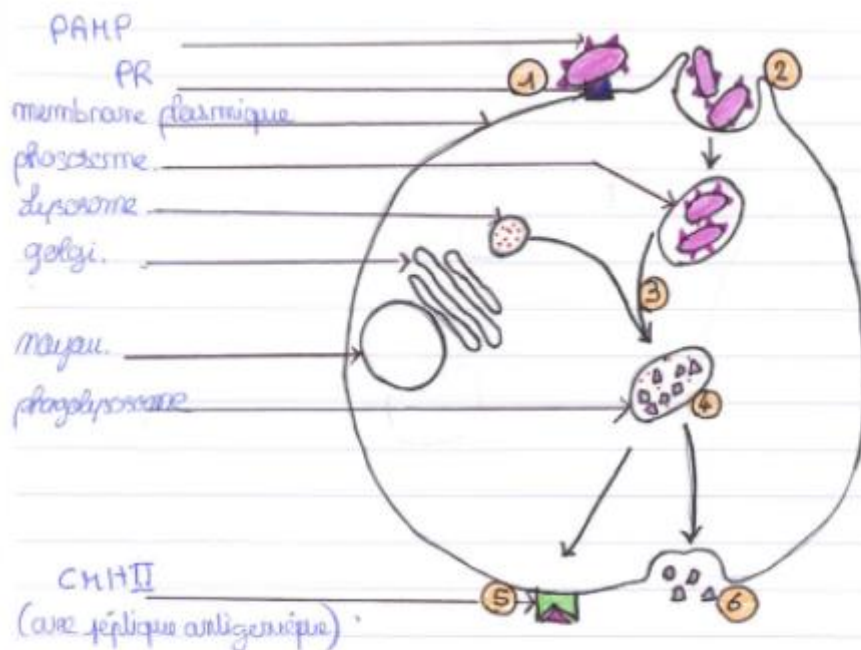 PAMP
PR
membrane plasmique
phagosome
Lysosome
golgi.
noyau.
phagolysosome
CMHII
(avec peptique antigenique)
1
2
3
4
5
6